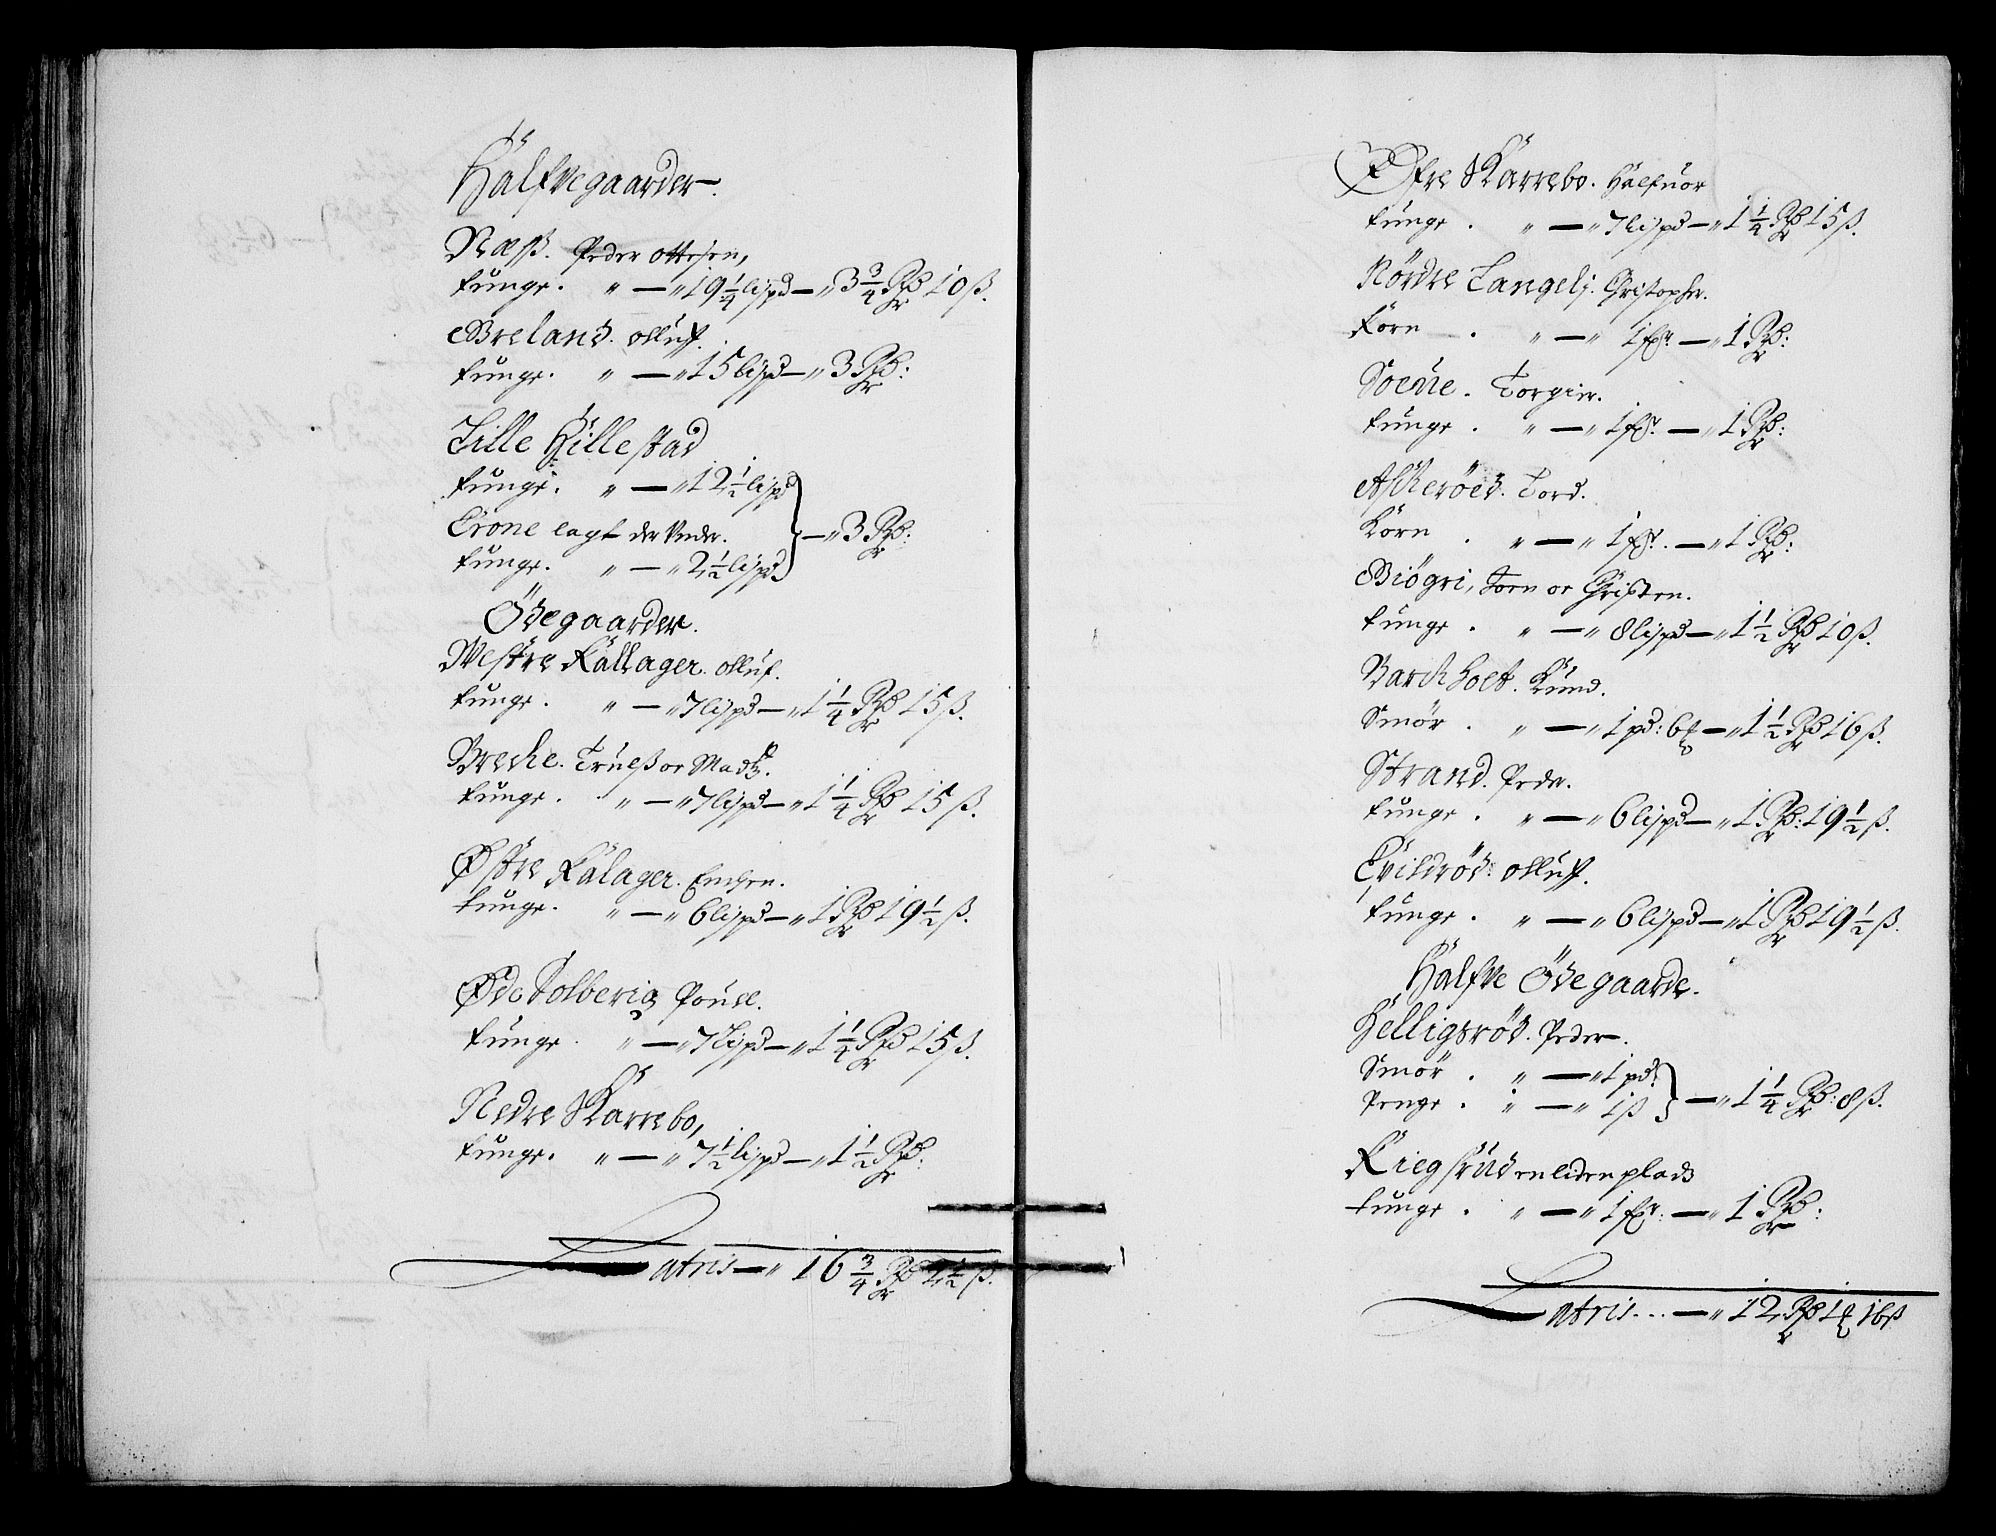 Halfvegaarder.
Næss. Peder Ottesen,
tunge. " — " 19 1/4 lispd — " 3 3/4 Rdr 10 ß.
Breland. Olluff.
tunge. " — " 15 lispd — " 3 Rdr:
Lille Hillestad
tunge. " — " 12 1/2 lispd
Crone lagt der Under. — " 3 Rdr:
tunge. " — " 2 1/2 lispd
Ødegaarder.
Westre Kallager. Olluf.
tunge. " — " 7 lispd — " 1 1/4 Rdr 15 ß.
Breche. Truelß or Madtz.
tunge. " — " 7 lispd — " 1 1/4 Rdr 15 ß.
Østre Kalager.
tunge. " — " 6 lispd — " 1 Rdr 19 1/2 ß.
Øde Solberig Pouel.
tunge. " — " 7 lispd — " 1 1/4 Rdr 15 ß.
Nedre Skarrebo,
tunge. " — " 7 1/2 lispd — " 1 1/2 Rdr:
Latris — " 16 3/4 Rdr 2 1/2 ß.
Øfre Skarrebo. Halfuor
tunge. " — " 7 lispd — " 1 1/4 Rdr 15 ß.
Nordre Langelj. Christopher.
Korn. " — " 1 fr. — " 1 Rdr:
Soelie. Torgier.
tunge. " — " 1 fr. — " 1 Rdr:
Askeröed. Tord.
Korn. " — " 1 fr. — " 1 Rdr:
Biögri, Joen or Christen.
tunge. " — " 8 lispd — " 1 1/2 Rdr 10 ß.
Barckholt. Knud.
Smör. " — " 1 pd: 6 — " 1 1/2 Rdr 16 ß.
Strand. Peder.
tunge. " — " 6 lispd — " 1 Rdr: 19 1/2 ß.
Evildröd: Olluff.
tunge. " — " 6 lispd — " 1 Rdr 19 1/2 ß.
Halfve Ödegaarde.
Helligsröd. Peder.
Smör. " — " 1 pd:
Penge. " — " 1 ß — " 1 1/4 Rdr: 8 ß.
Kiegsrüd en liden plads
tunge. " — " 1 fr: — " 1 Rdr:
Latris... — " 12 Rdr 16 ß